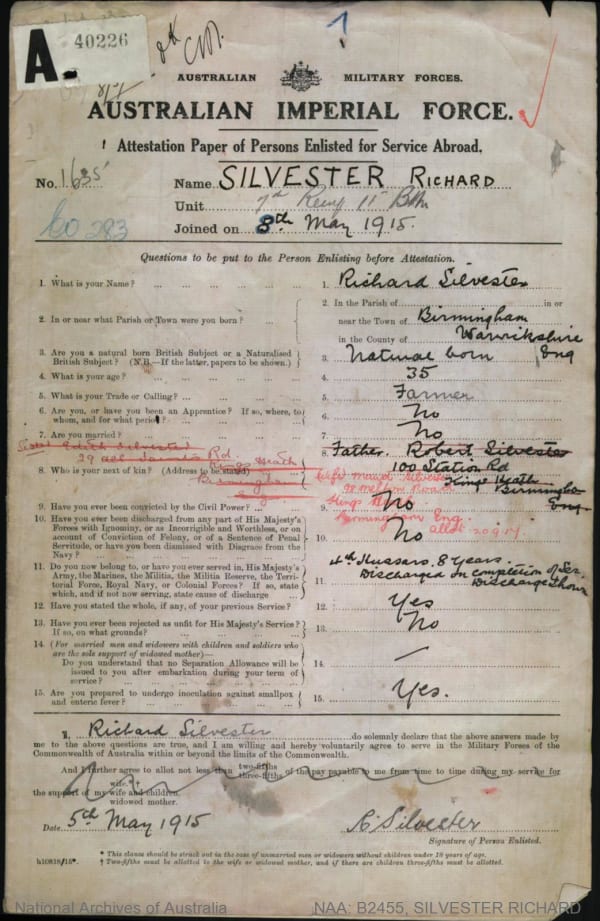 A. 40226
1
AUSTRALIAN MILITARY FORCES.
AUSTRALIAN IMPERIAL FORCE.
Attestation Paper of Persons Enlisted for Service Abroad.
No. 1635 Name SILVESTER RICHARD
Unit 7th Reinf 11 Bttn
Joined on 8th May 1915.
Co 283
Questions to be put to the Person Enlisting before Attestation.
1. What is your Name? ... 1. Richard Silvester
2. In or near what Parish or Town were you born? ... 2. In the Parish of ... in or
near the Town of Birmingham
in the County of Warwikshire
Eng
3. Are you a natural born British Subject or a Naturalised
British Subject? (N.B.—If the latter, papers to be shown.) 3. Natural born
4. What is your age? ... 4. 35
5. What is your Trade or Calling? ... 5. Farmer
6. Are you, or have you been an Apprentice? If so, where, to
whom, and for what period? 6. No
7. Are you married? ... 7. No
Sister Edith Silvester
Rd
Kings Heath
Birmingham
8. Who is your next of kin? (Address to be stated) 8. Father. Robert Silvester
100 Station Rd
Kings Heath
Birmingham
Eng
Wife Silvester
Kings
Birmingham Eng.
allot 20.9.17.
9. Have you ever been convicted by the Civil Power? ... 9. No
10. Have you ever been discharged from any part of His Majesty's
Forces with Ignominy, or as Incorrigible and Worthless, or on
account of Conviction of Felony, or of a Sentence of Penal
Servitude, or have you been dismissed with Disgrace from the
Navy? ... 10. No
11. Do you now belong to, or have you ever served in, His Majesty's
Army, the Marines, the Militia, the Militia Reserve, the Terri-
torial Force, Royal Navy, or Colonial Forces? If so, state
which, and if not now serving, state cause of discharge 11. 4th Hussars. 8 Years.
Discharged on completion of Ser.
Discharge Shown
12. Have you stated the whole, if any, of your previous Service? 12. Yes
13. Have you ever been rejected as unfit for His Majesty's Service?
If so, on what grounds? 13. No
14. (For married men and widowers with children and soldiers who
are the sole support of widowed mother)—
Do you understand that no Separation Allowance will be
issued to you after embarkation during your term of
service? ... 14. —
15. Are you prepared to undergo inoculation against smallpox
and enteric fever? ... 15. Yes.
I, Richard Silvester do solemnly declare that the above answers made by
me to the above questions are true, and I am willing and hereby voluntarily agree to serve in the Military Forces of the
Commonwealth of Australia within or beyond the limits of the Commonwealth.
And I further agree to allot not less than two-fifths
three-fifths of the pay payable to me from time to time during my service for
the support of my wife †
wife and children.
widowed mother.
Date 5th May 1915 R Silvester
Signature of Person Enlisted.
* This clause should be struck out in the case of unmarried men or widowers without children under 18 years of age.
† Two-fifths must be allotted to the wife or widowed mother, and if there are children three-fifths must be allotted.
National Archives of Australia NAA: B2455, SILVESTER RICHARD